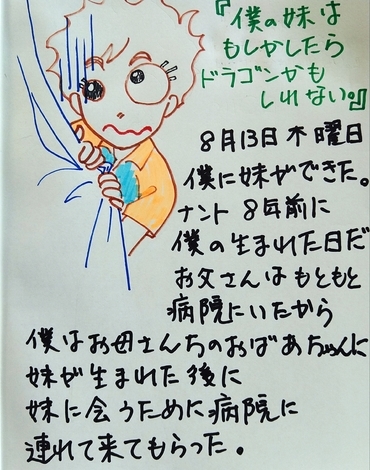 『僕の妹は
もしかしたら
ドラゴンかも
しれない。』
8月13日木曜日
僕に妹ができた。
ナント8年前に
僕の生まれた日だ
お父さんはもともと
病院にいたから
僕はお母さんちのおばあちゃんに
妹が生まれた後に
妹に会うために病院に
連れて来てもらった。